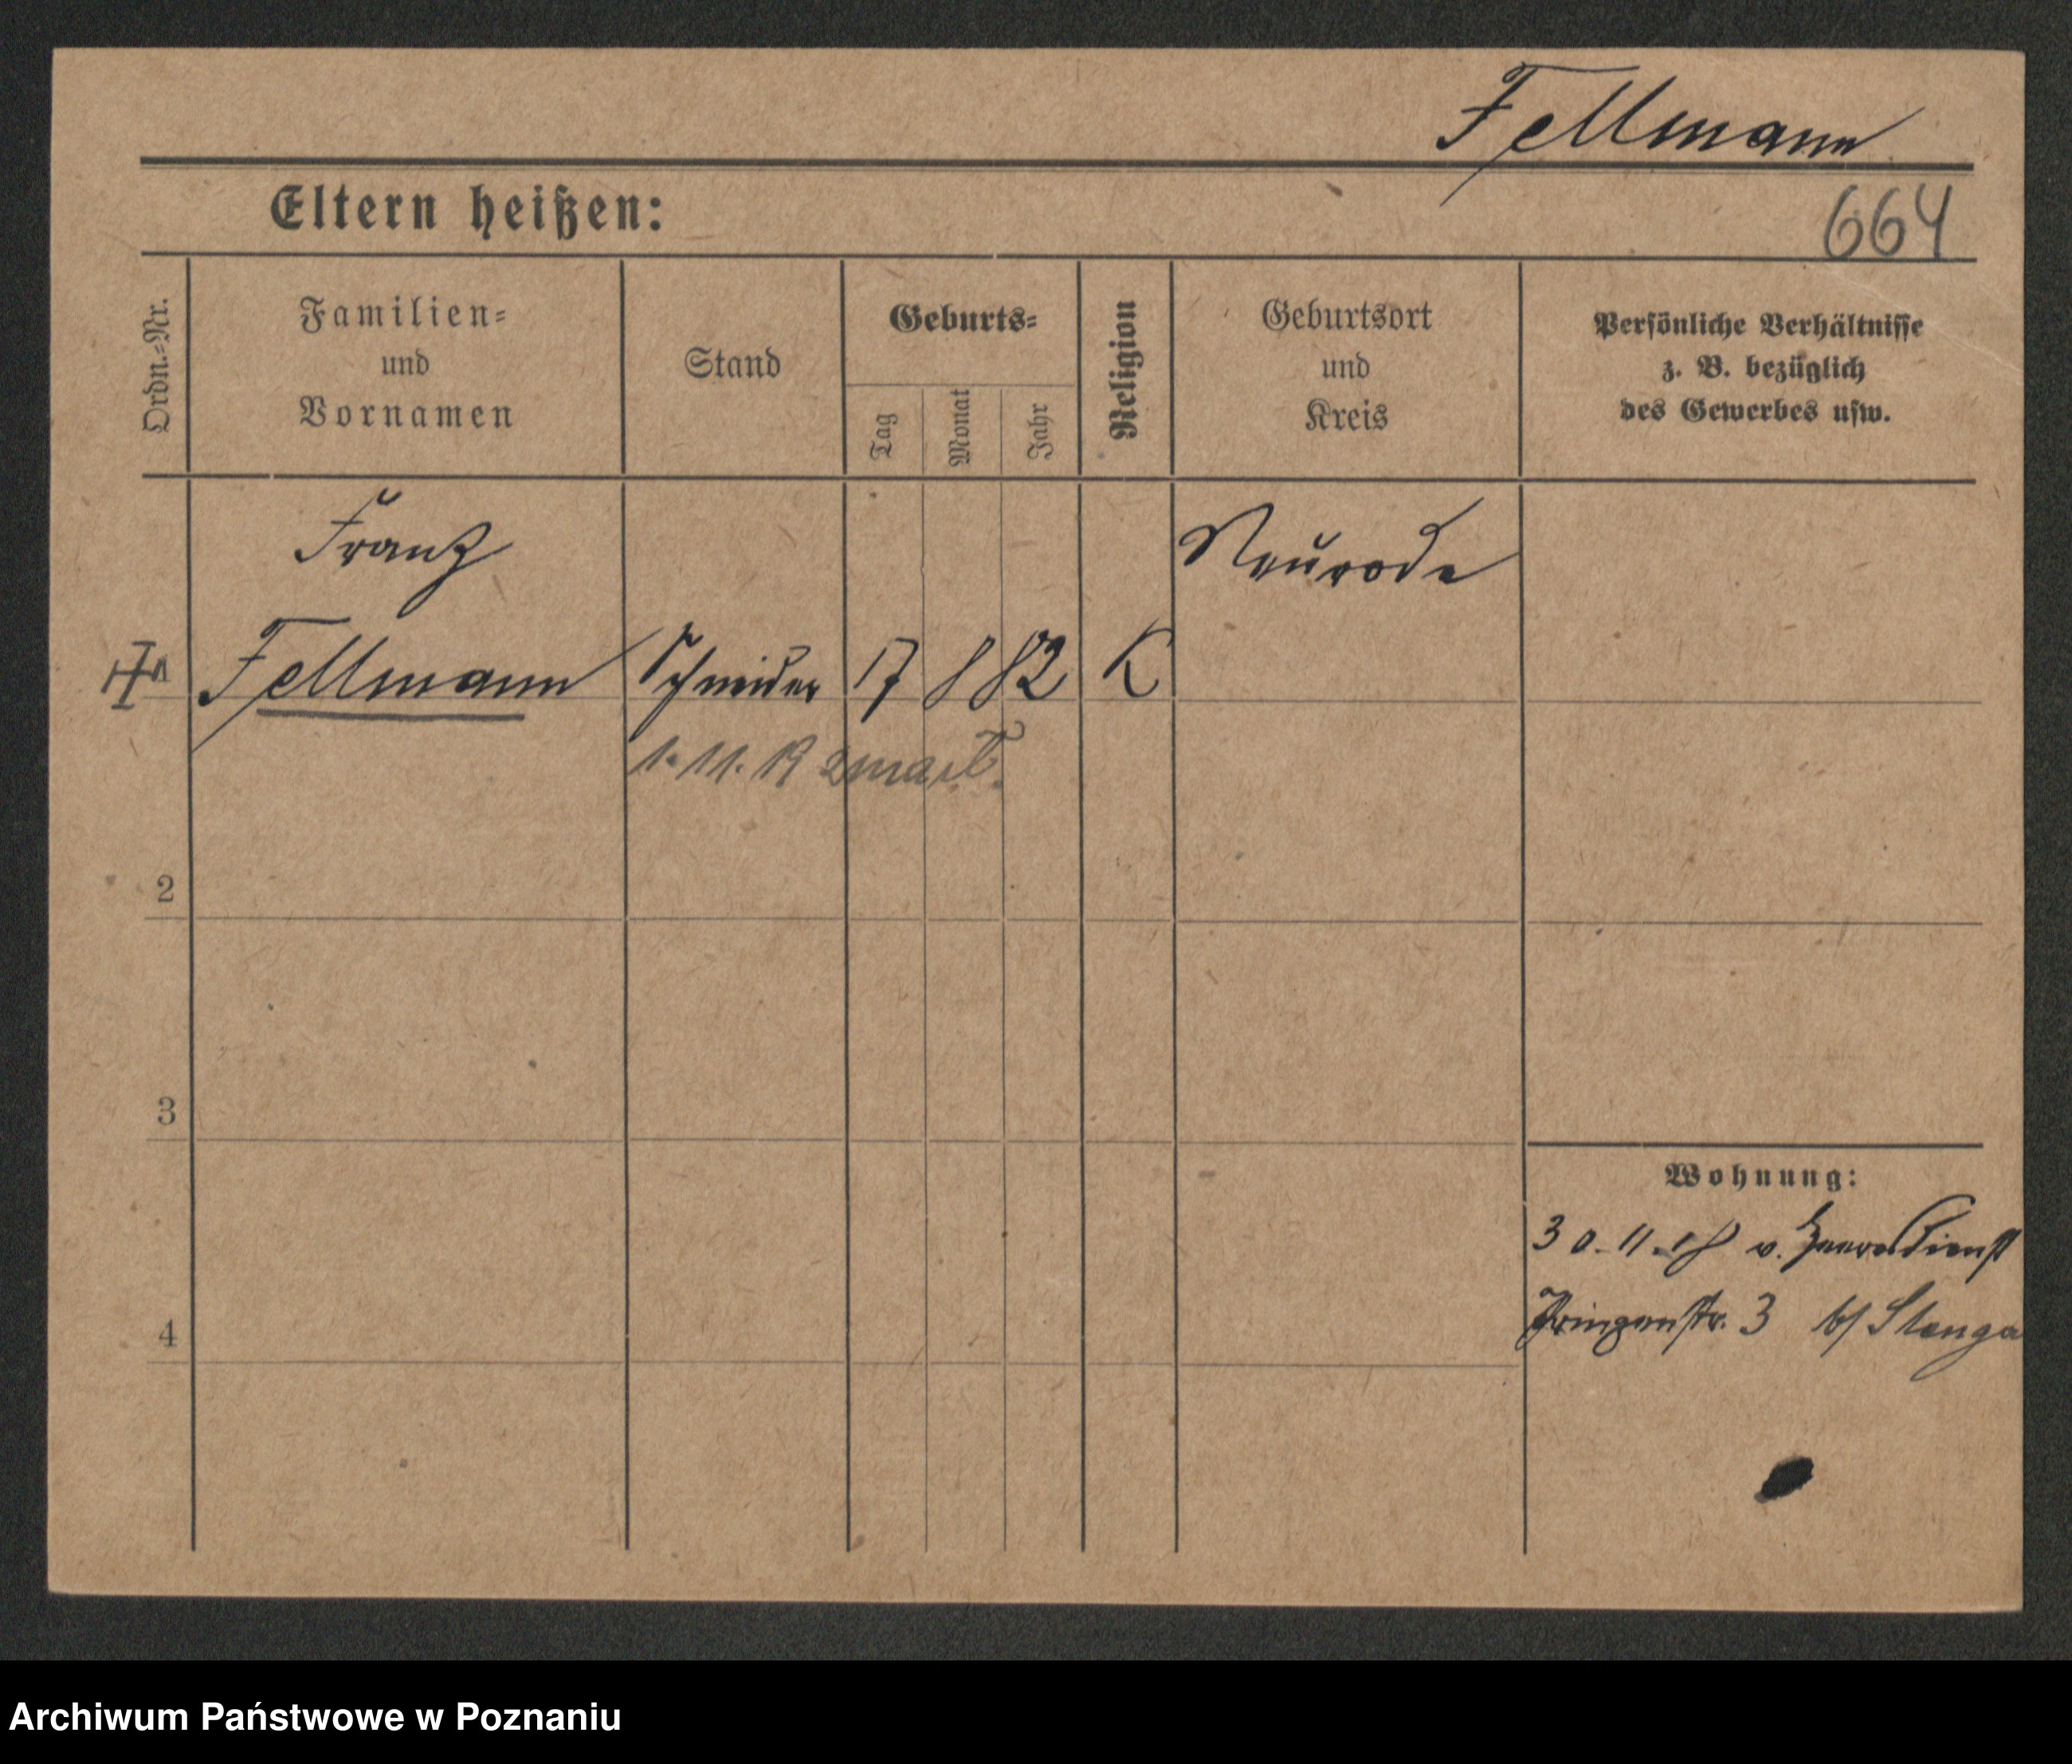 Fellmann
Eltern heißen:
664
Ordn.=Nr.
Familien=
und
Vornamen
Stand
Geburts=
Tag
Monat
Jahr
Religion
Geburtsort
und
Kreis
Persönliche Verhältnisse
z. B. bezüglich
des Gewerbes usw.
Franz
Neurode
Fellmann Schneider 17 8 82 K
1.11.19 zmarł.
2
3
4
Wohnung:
30.11.18 v. Heeresdienst
Prinzenstr. 3 b/ Stenga
Archiwum Państwowe w Poznaniu